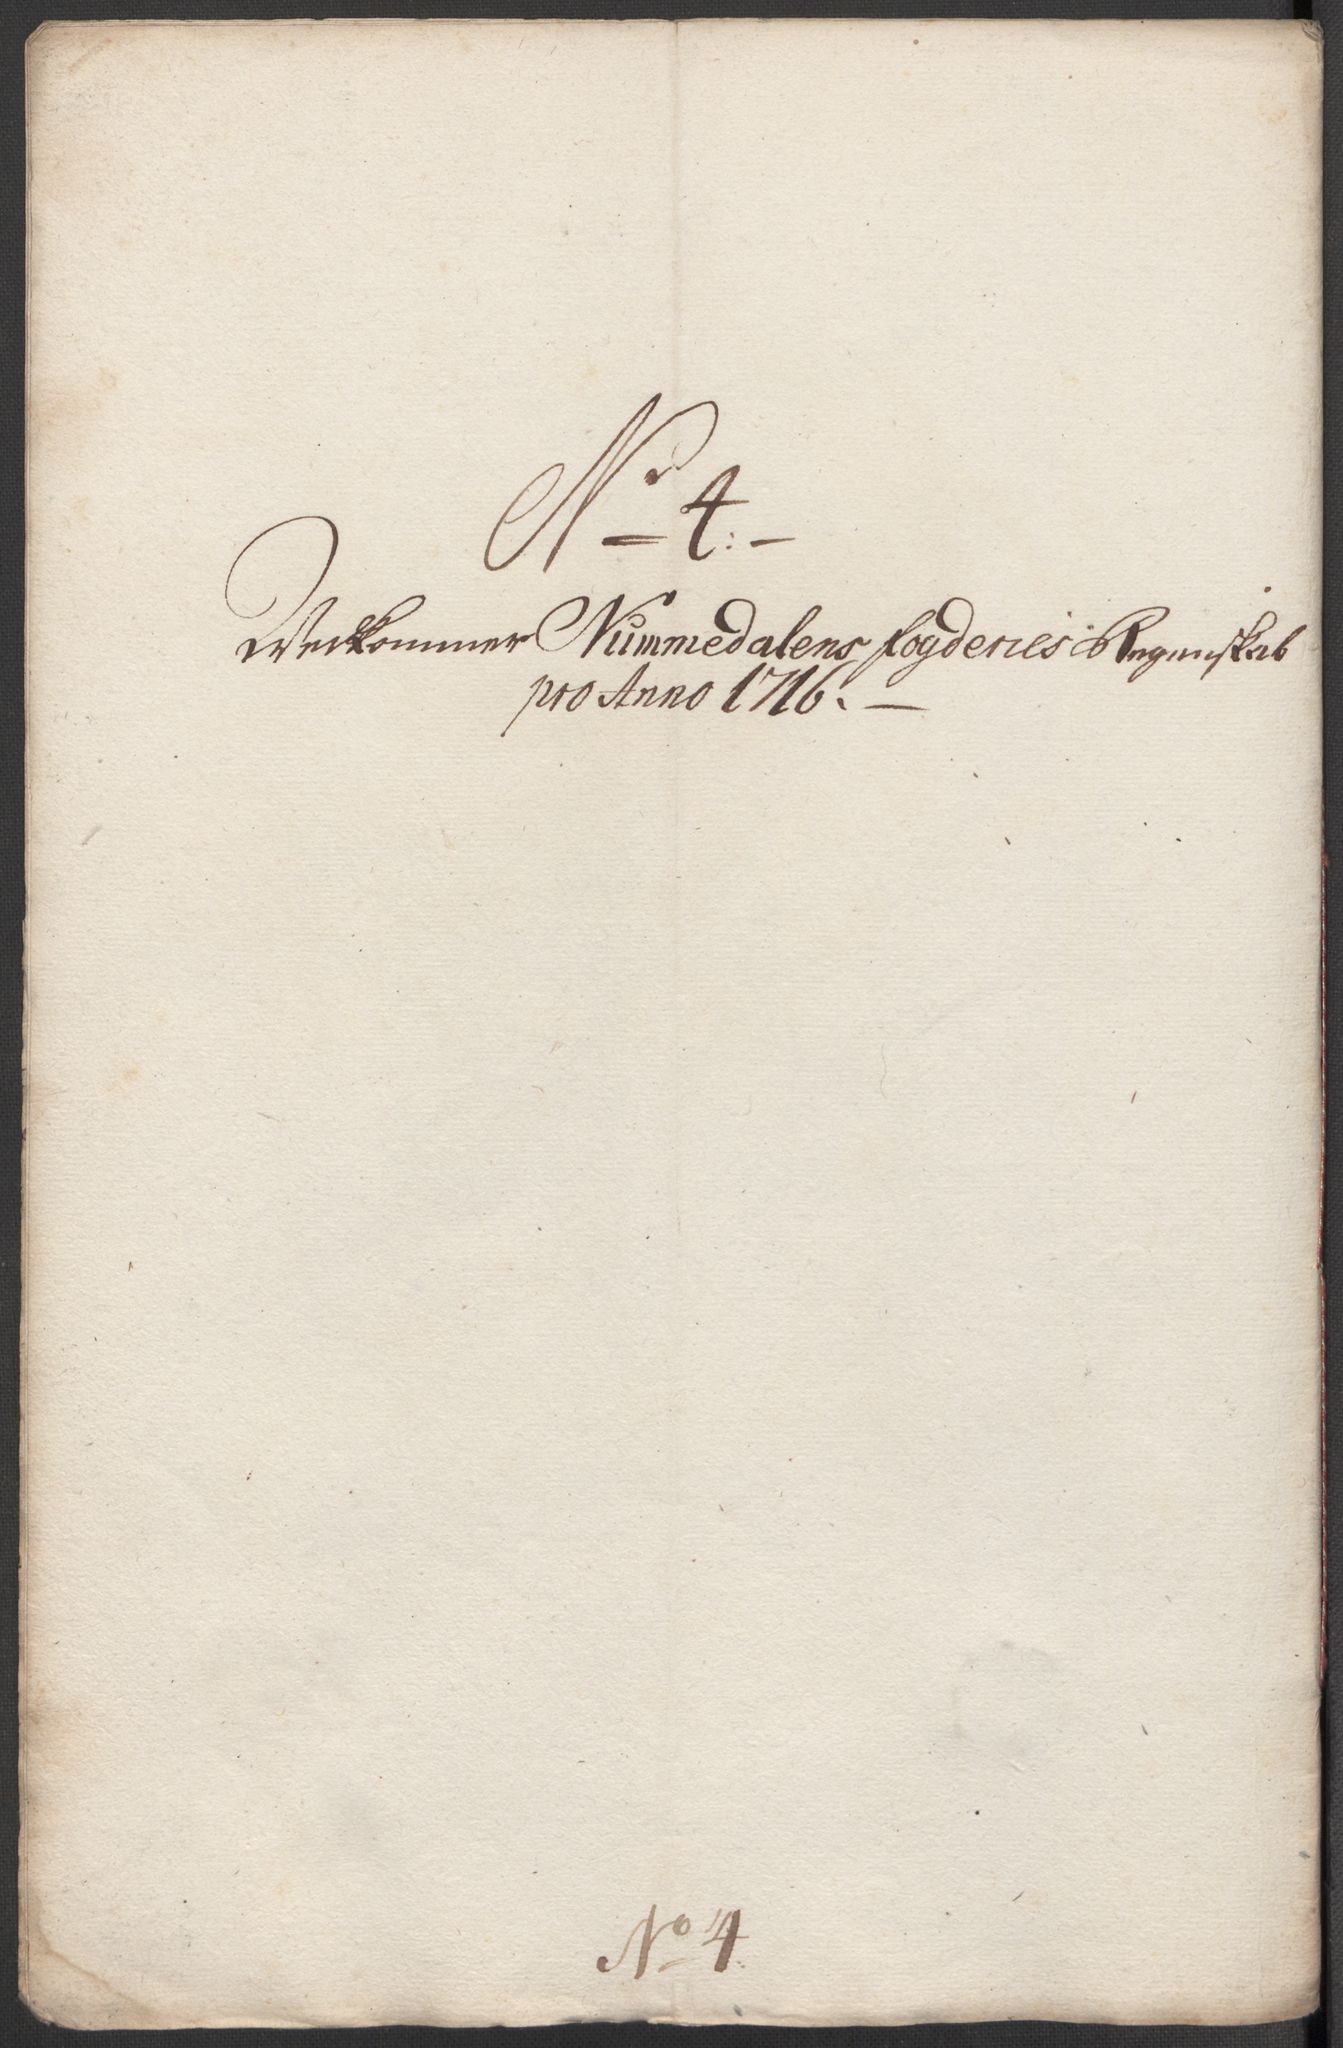 No 4:
Vedkommer Nummedalens fogderies Regenskab
pro Anno 1716.
No 4.